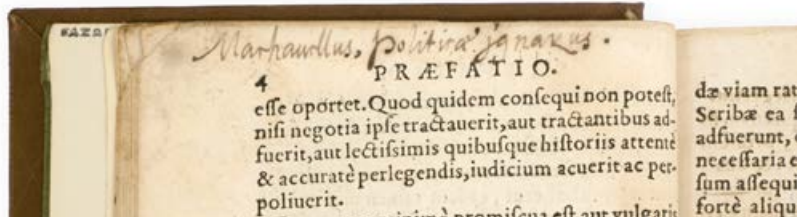 Machauellus, politicæ ignarus.
4
PRÆFATIO.
eſſe oportet. Quod quidem conſequi non poteſt,
niſi negotia ipſe tractauerit, aut tractantibus ad-
fuerit, aut lectiſſimis quibuſque hiſtoriis attentè
& accuratè perlegendis, iudicium acuerit ac per-
poliuerit.
promiſcua eſt aut vulgaris
dæ viam rat
Scribæ ea
adfuerunt,
neceſſaria e
ſum aſſequi
fortè aliqu